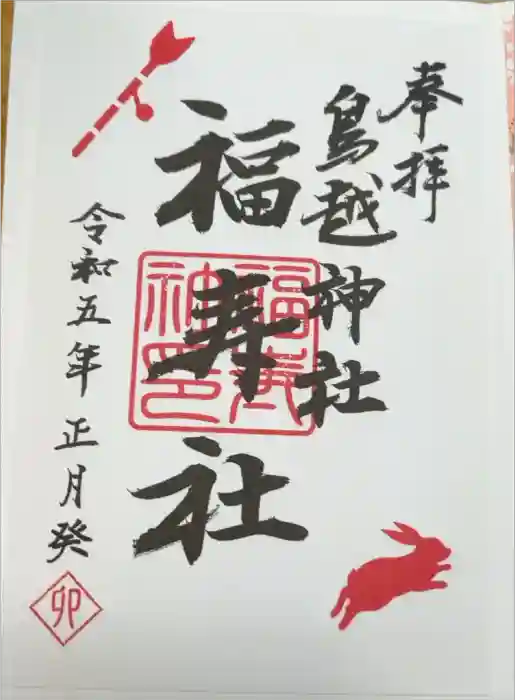 奉拝
鳥越神社
福寿社
福寿神印
令和五年正月癸
卯